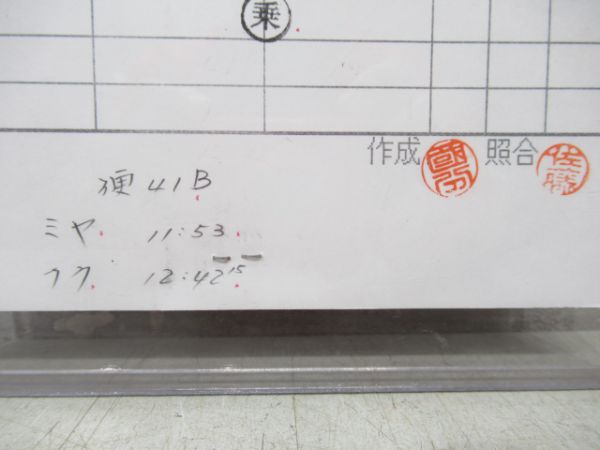 乗
作成 國分 照合 佐藤
便 41B
ミヤ. 11:53.
フク. 12:42 15.